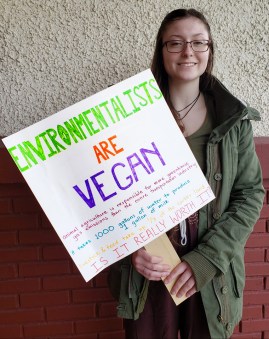 ENVIRONMENTALISTS
ARE
VEGAN
Animal agriculture is responsible for more greenhouse
gas emissions than the entire transportation industry
It takes 1000 gallons of water to produce
1 gallon of milk
IS IT REALLY WORTH IT?